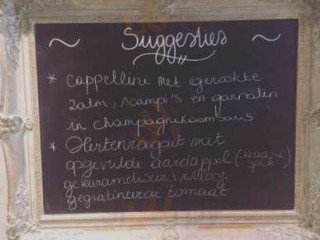 ~ Suggesties ~
* Cappellini met gerookte
zalm, scampi's en garnalen
in champagneroomsaus
* Hertenragout met
opgevulde aardappel
gekarameliseerd witloof,
gegratineerde tomaat